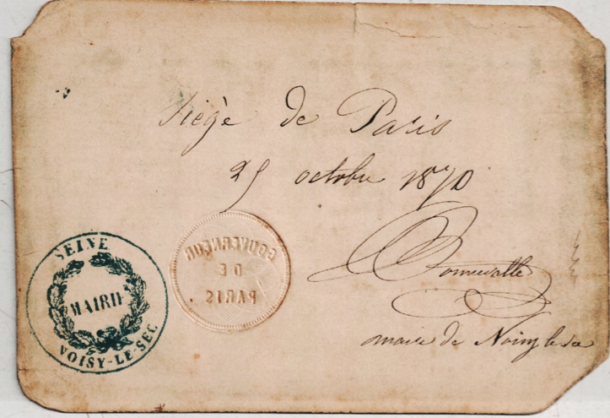 Siège de Paris
25 octobre 1870
Bonnevalle
maire de Noisy le Sec
SEINE
MAIRIE
NOISY-LE-SEC.
GOUVERNEUR
DE
PARIS.